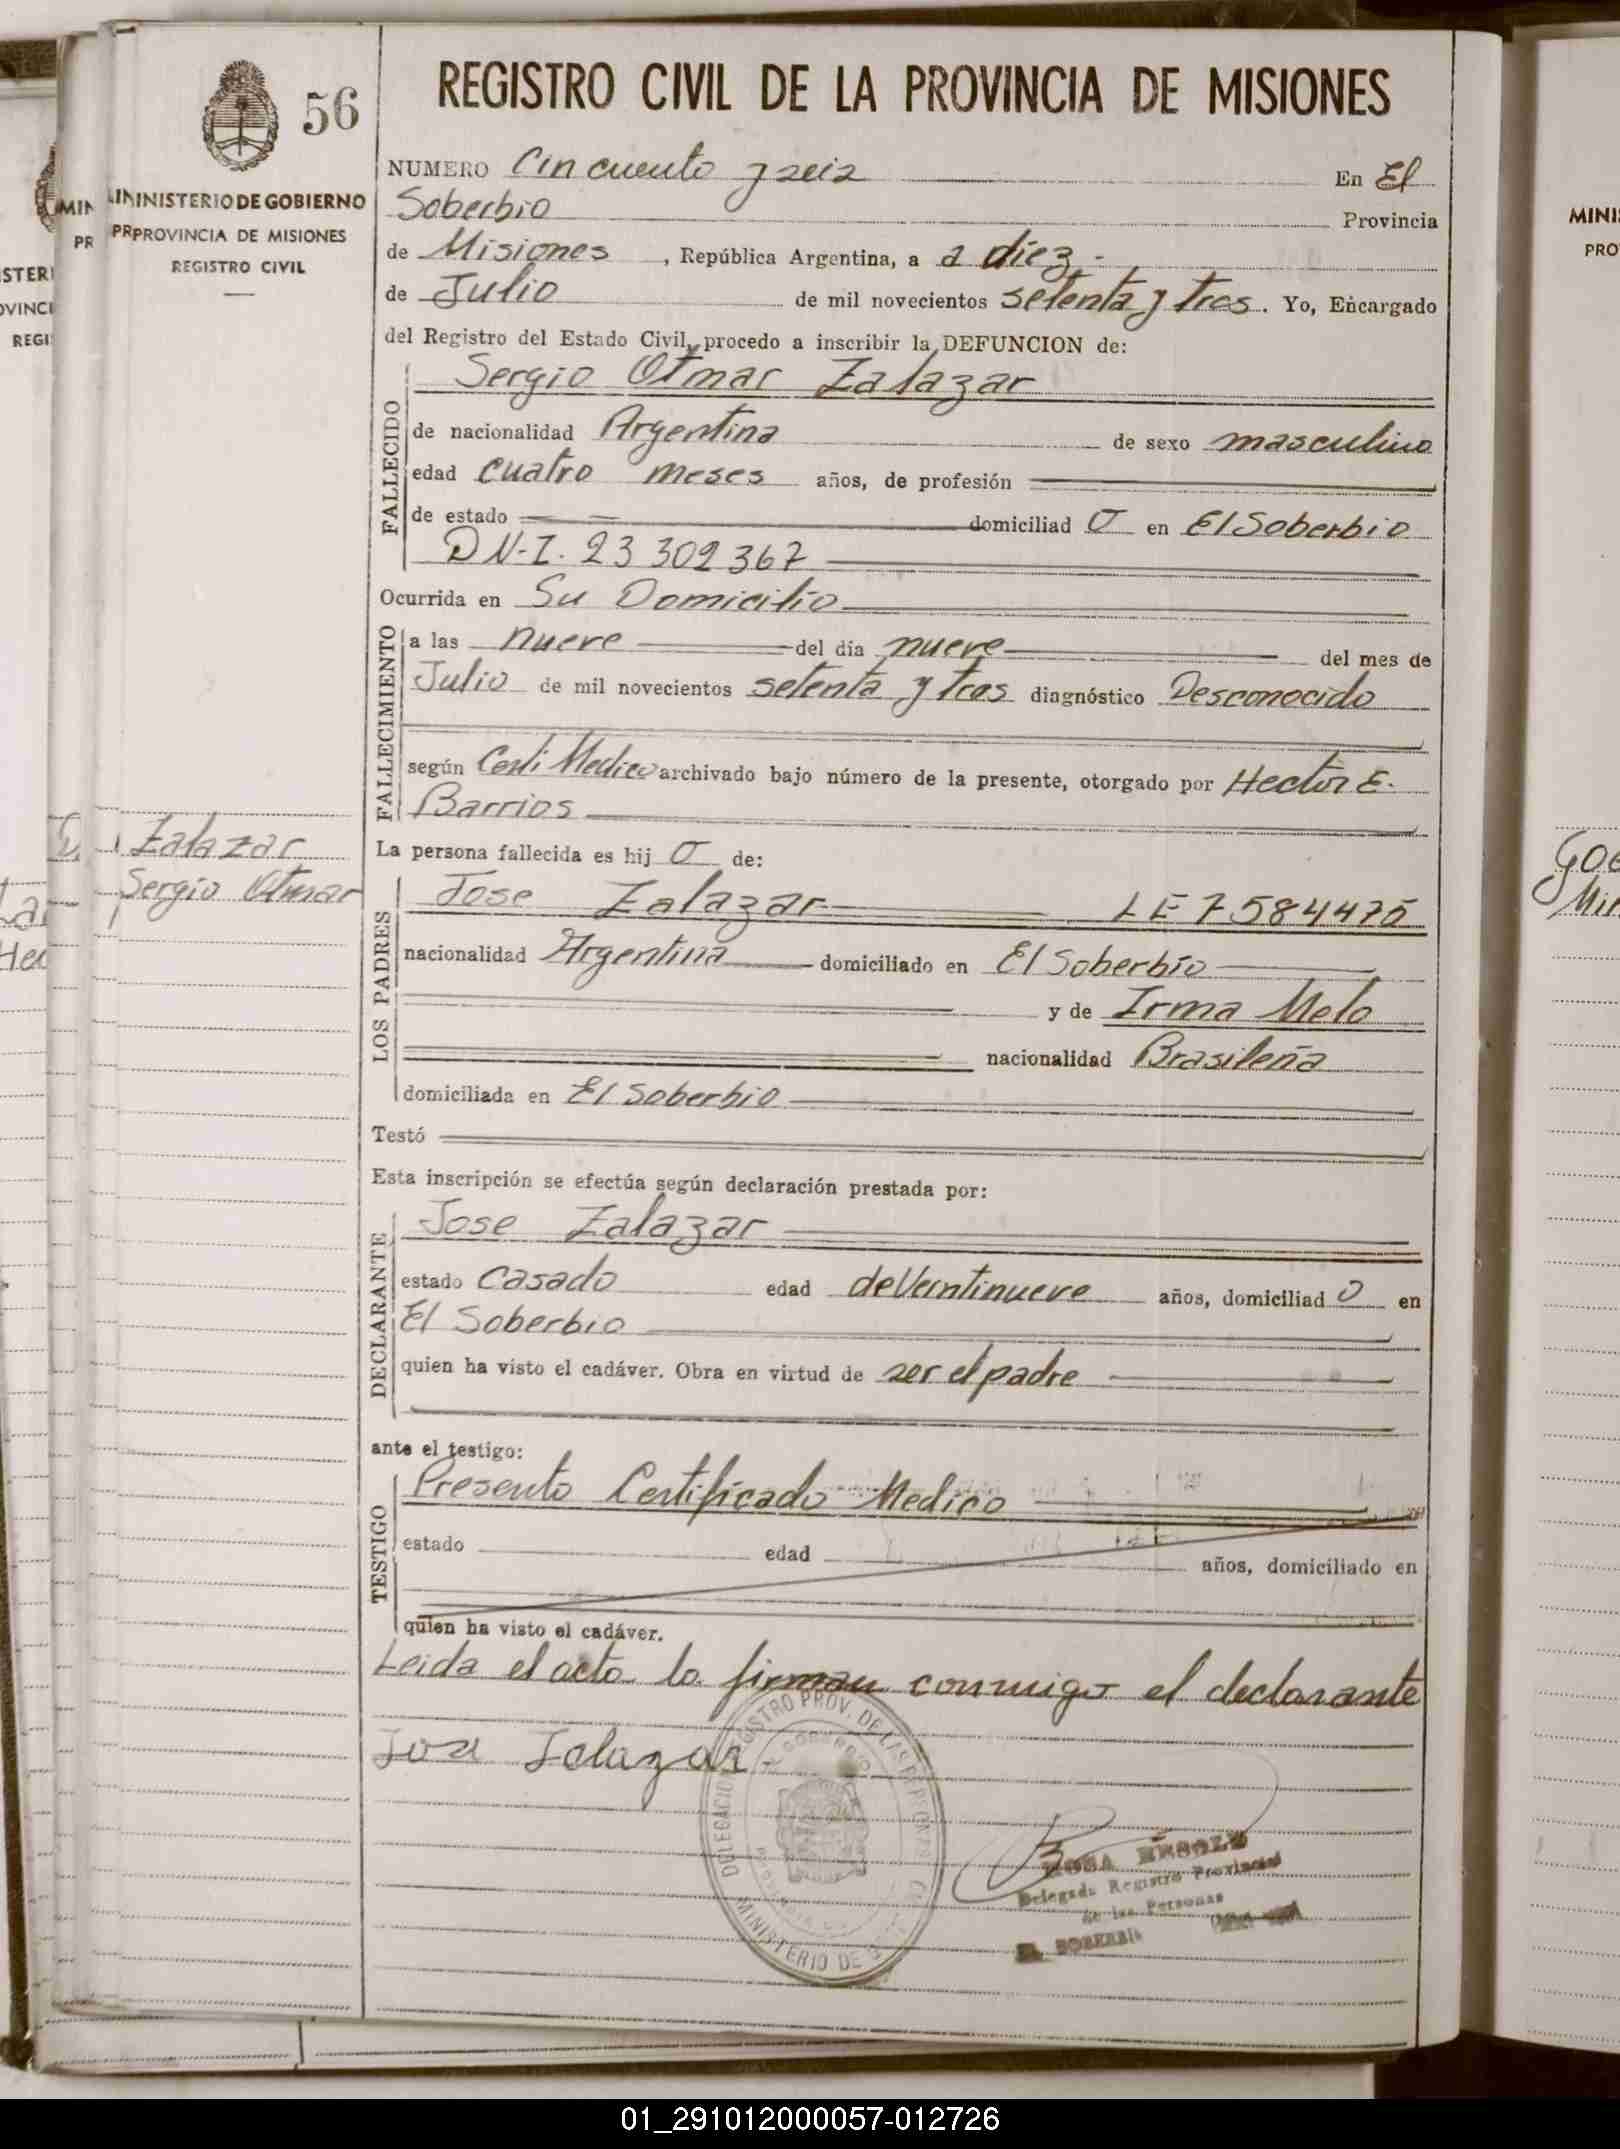 56
MINISTERIO DE GOBIERNO
PROVINCIA DE MISIONES
REGISTRO CIVIL
REGISTRO CIVIL DE LA PROVINCIA DE MISIONES
NUMERO Cincuenta y seis En El
Soberbio Provincia
de Misiones, República Argentina, a a diez -
de Julio de mil novecientos setenta y tres. Yo, Encargado
del Registro del Estado Civil, procedo a inscribir la DEFUNCION de:
FALLECIDO
Sergio Otmar Zalazar
de nacionalidad Argentina de sexo masculino
edad cuatro meses años, de profesión
de estado domiciliad o en El Soberbio
D N-I. 23 302 367
Ocurrida en Su Domicilio
FALLECIMIENTO
a las nueve del día nueve del mes de
Julio de mil novecientos setenta y tres diagnóstico Desconocido
según Certi Medico archivado bajo número de la presente, otorgado por Hector E.
Barrios
Zalazar
Sergio Otmar
La persona fallecida es hij o de:
LOS PADRES
Jose Zalazar LE 7584475
nacionalidad Argentina domiciliado en El Soberbio
y de Irma Melo
nacionalidad Brasileña
domiciliada en El Soberbio
Testó
Esta inscripción se efectúa según declaración prestada por:
DECLARANTE
Jose Zalazar
estado Casado edad de Veintinueve años, domiciliad o en
El Soberbio
quien ha visto el cadáver. Obra en virtud de ser el padre
ante el testigo:
TESTIGO
Presento Certificado Medico
estado edad años, domiciliado en
quien ha visto el cadáver.
Leida el acta la firman conmigo el declarante
Jose Zalazar.
Delegada Registro Provincial
de las Personas
EL SOBERBIO
MINISTERIO DE
01_291012000057-012726